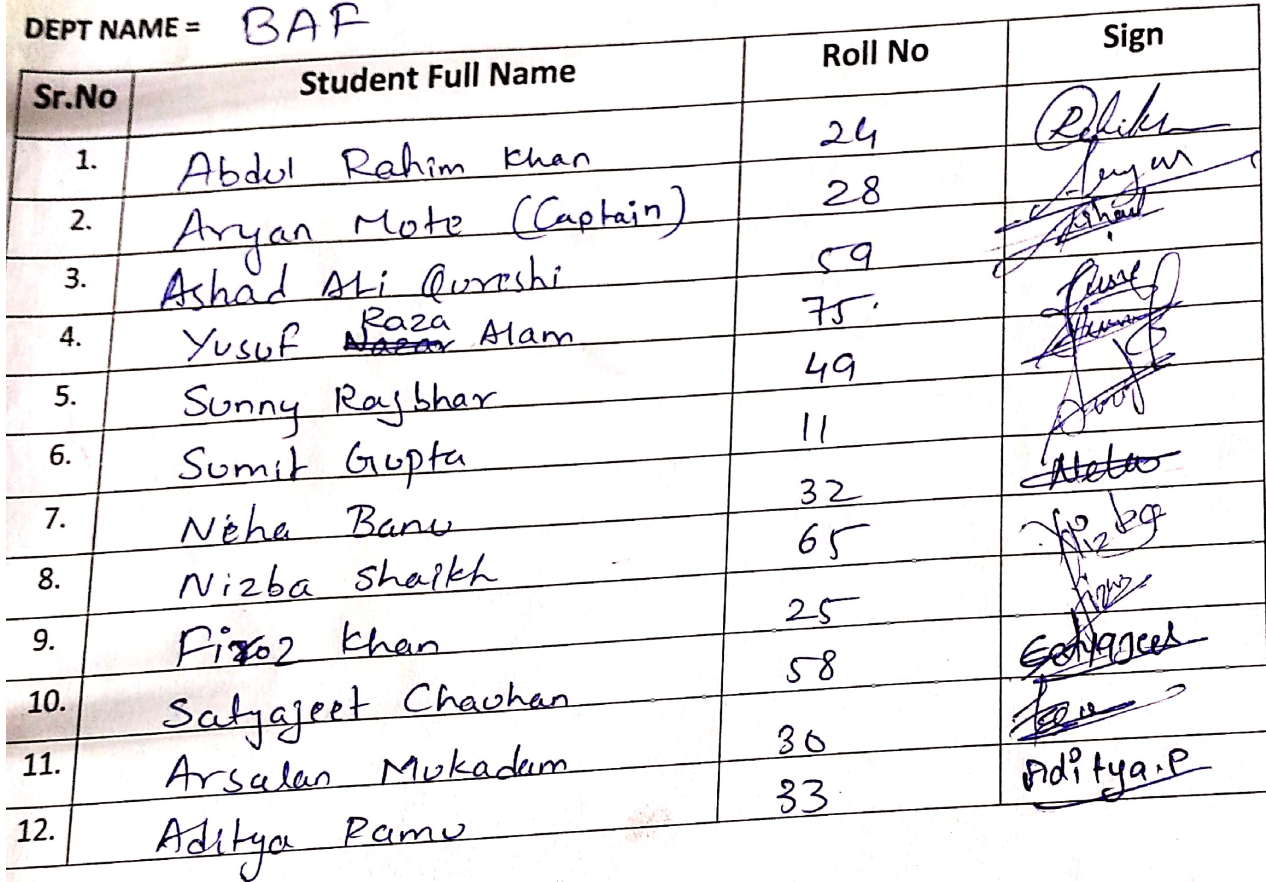 DEPT NAME = BAF
Sr.No Student Full Name Roll No Sign
1. Abdul Rahim Khan 24
2. Aryan Mote (Captain) 28 Aryan
3. Ashad Ali Qureshi 59 Ashad
4. Yusuf Raza Alam 75.
5. Sunny Rajbhar 49
6. Sumit Gupta 11
7. Neha Banu 32 Neha
8. Nizba Shaikh 65 Nizba
9. Firoz Khan 25
10. Satyajeet Chauhan 58 Satyajeet
11. Arsalan Mukadam 30
12. Aditya Ramu 33 Aditya.P